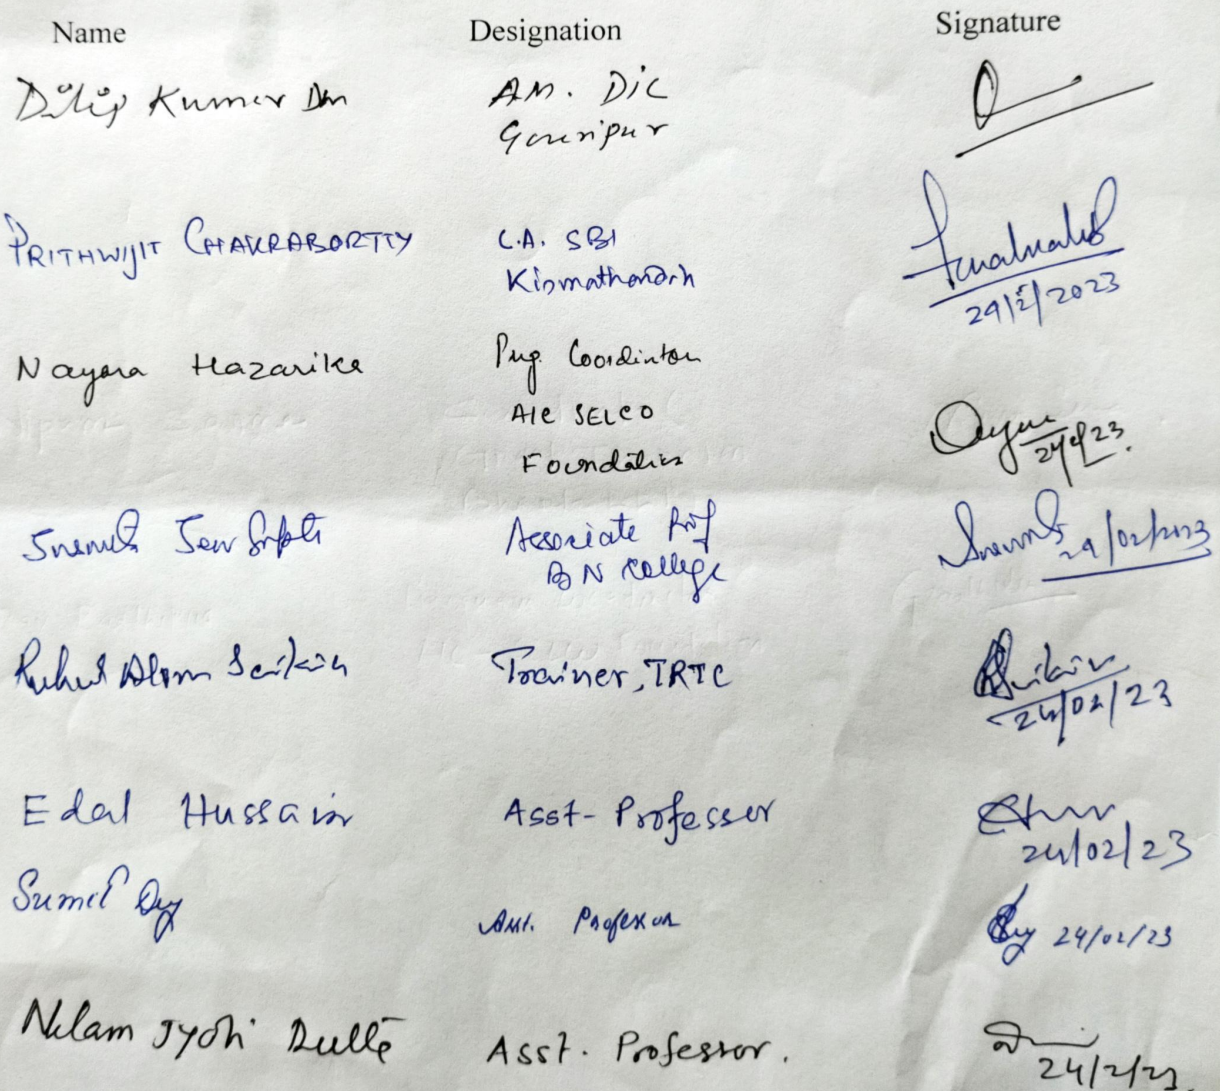 Name Designation Signature
Dilip Kumar Das AM. DIC
Gauripur
PRITHWIJIT CHAKRABORTTY C.A. SBI
29/2/2023
Nayana Hazarika Prog. Coordinator
SELCO
Foundation 24/2/23.
Sen Gupta Associate Prof 29/02/2023
B N College
Ruhul Alom Saikia Trainer, TRTC
24/02/23
Edal Hussain Asst- Professor
24/02/23
Sumit Dey Asst. Professor Dey 24/02/23
Nilam Jyoti Dutta Asst. Professor.
24/2/23